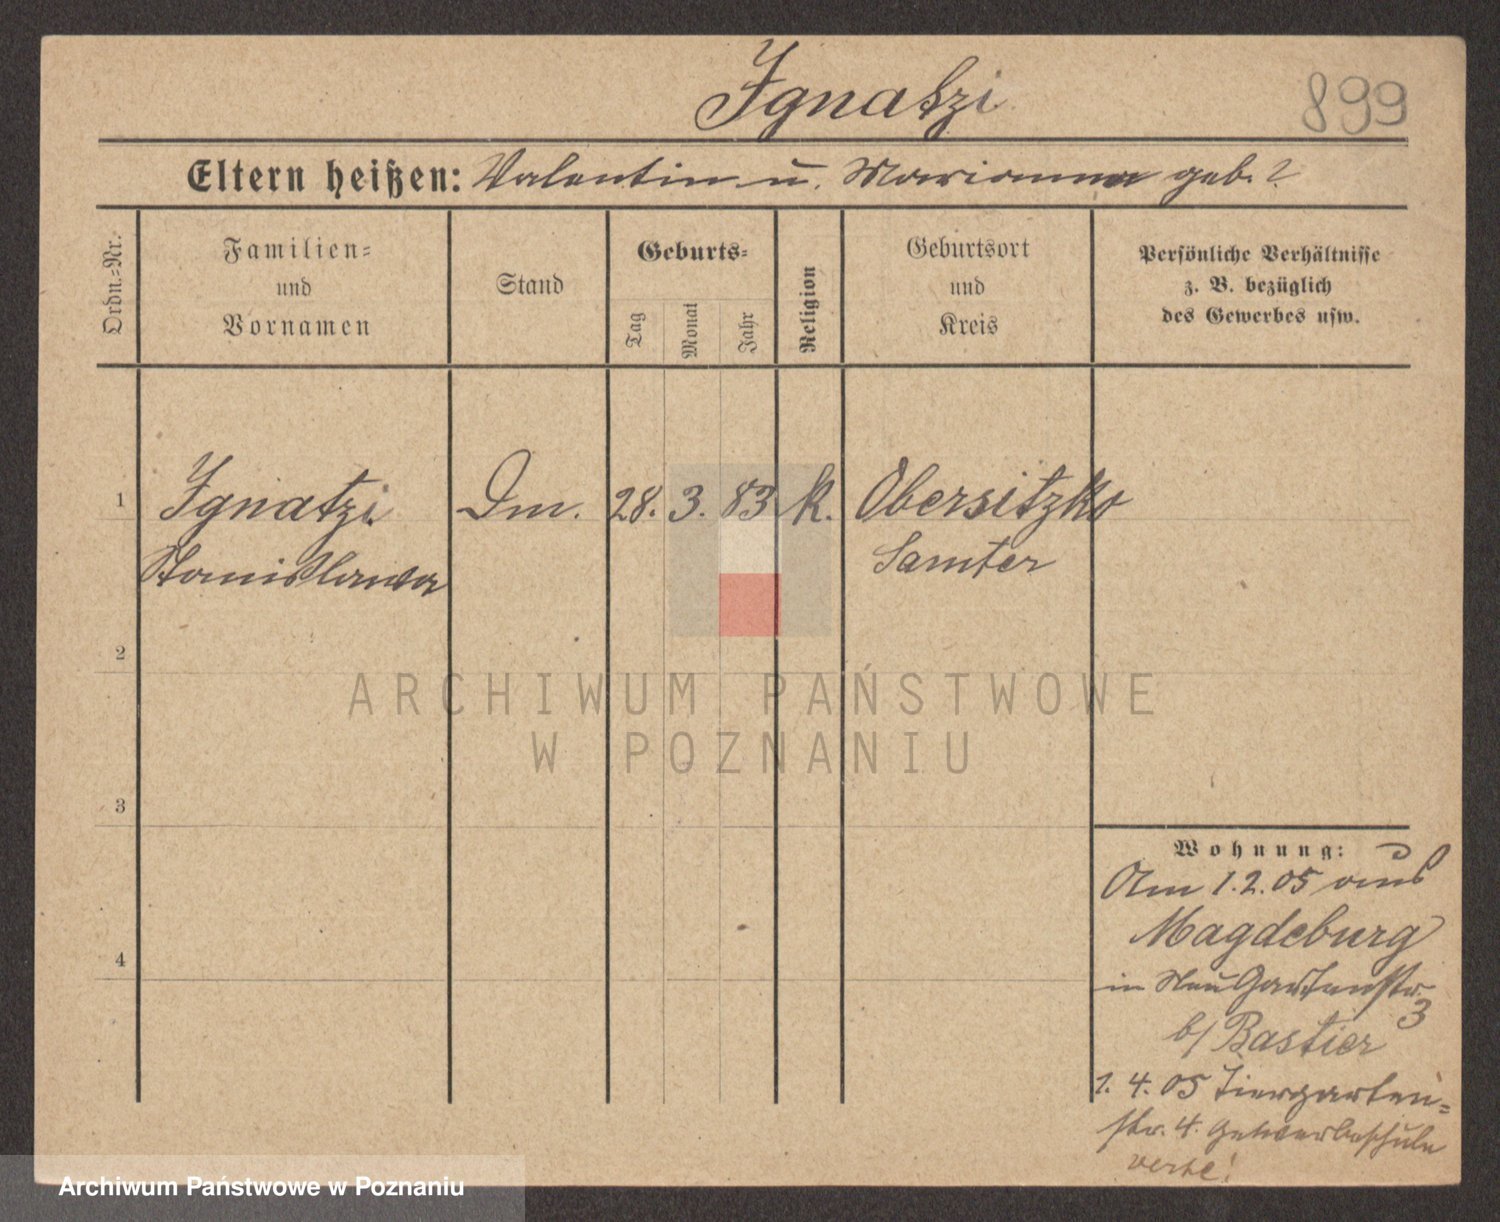 Ignatzi
899
Eltern heißen: Valentin u. Marianna geb. ?
Ordn.=Nr.
Familien=
und
Vornamen
Stand
Geburts=
Tag
Monat
Jahr
Religion
Geburtsort
und
Kreis
Persönliche Verhältnisse
z. B. bezüglich
des Gewerbes usw.
1
Ignatzi Dm. 28. 3. 83 k. Obersitzko
Stanislawa Samter
2
ARCHIWUM PAŃSTWOWE
W POZNANIU
3
Wohnung:
Am 1.2.05 aus
Magdeburg
in Neu Gartenstr.
3
b/ Bastier
1. 4. 05 Tiergarten=
str. 4. Gewerbeschule
4
Archiwum Państwowe w Poznaniu